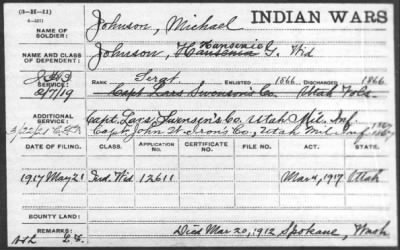 (3-H-11)
INDIAN WARS
NAME OF SOLDIER: Johnson, Michael
NAME AND CLASS OF DEPENDENT: Johnson, Hansenie G. Wid
SERVICE: RANK Sergt ENLISTED 1866 DISCHARGED 1866
8/7/19 Capt Lars Swenson's Co. Utah Vols.
ADDITIONAL SERVICE: Capt. Lars Swensen's Co. Utah Mil. Inf.
Capt. John W. Irons Co, Utah Mil. Inf 1867
DATE OF FILING. CLASS. APPLICATION NO. CERTIFICATE NO. FILE NO. ACT. STATE.
1917 May 21 Ind. Wid 12611 Mar 4, 1917 Utah
BOUNTY LAND:
REMARKS: Died Mar 20, 1912 Spokane, Wash